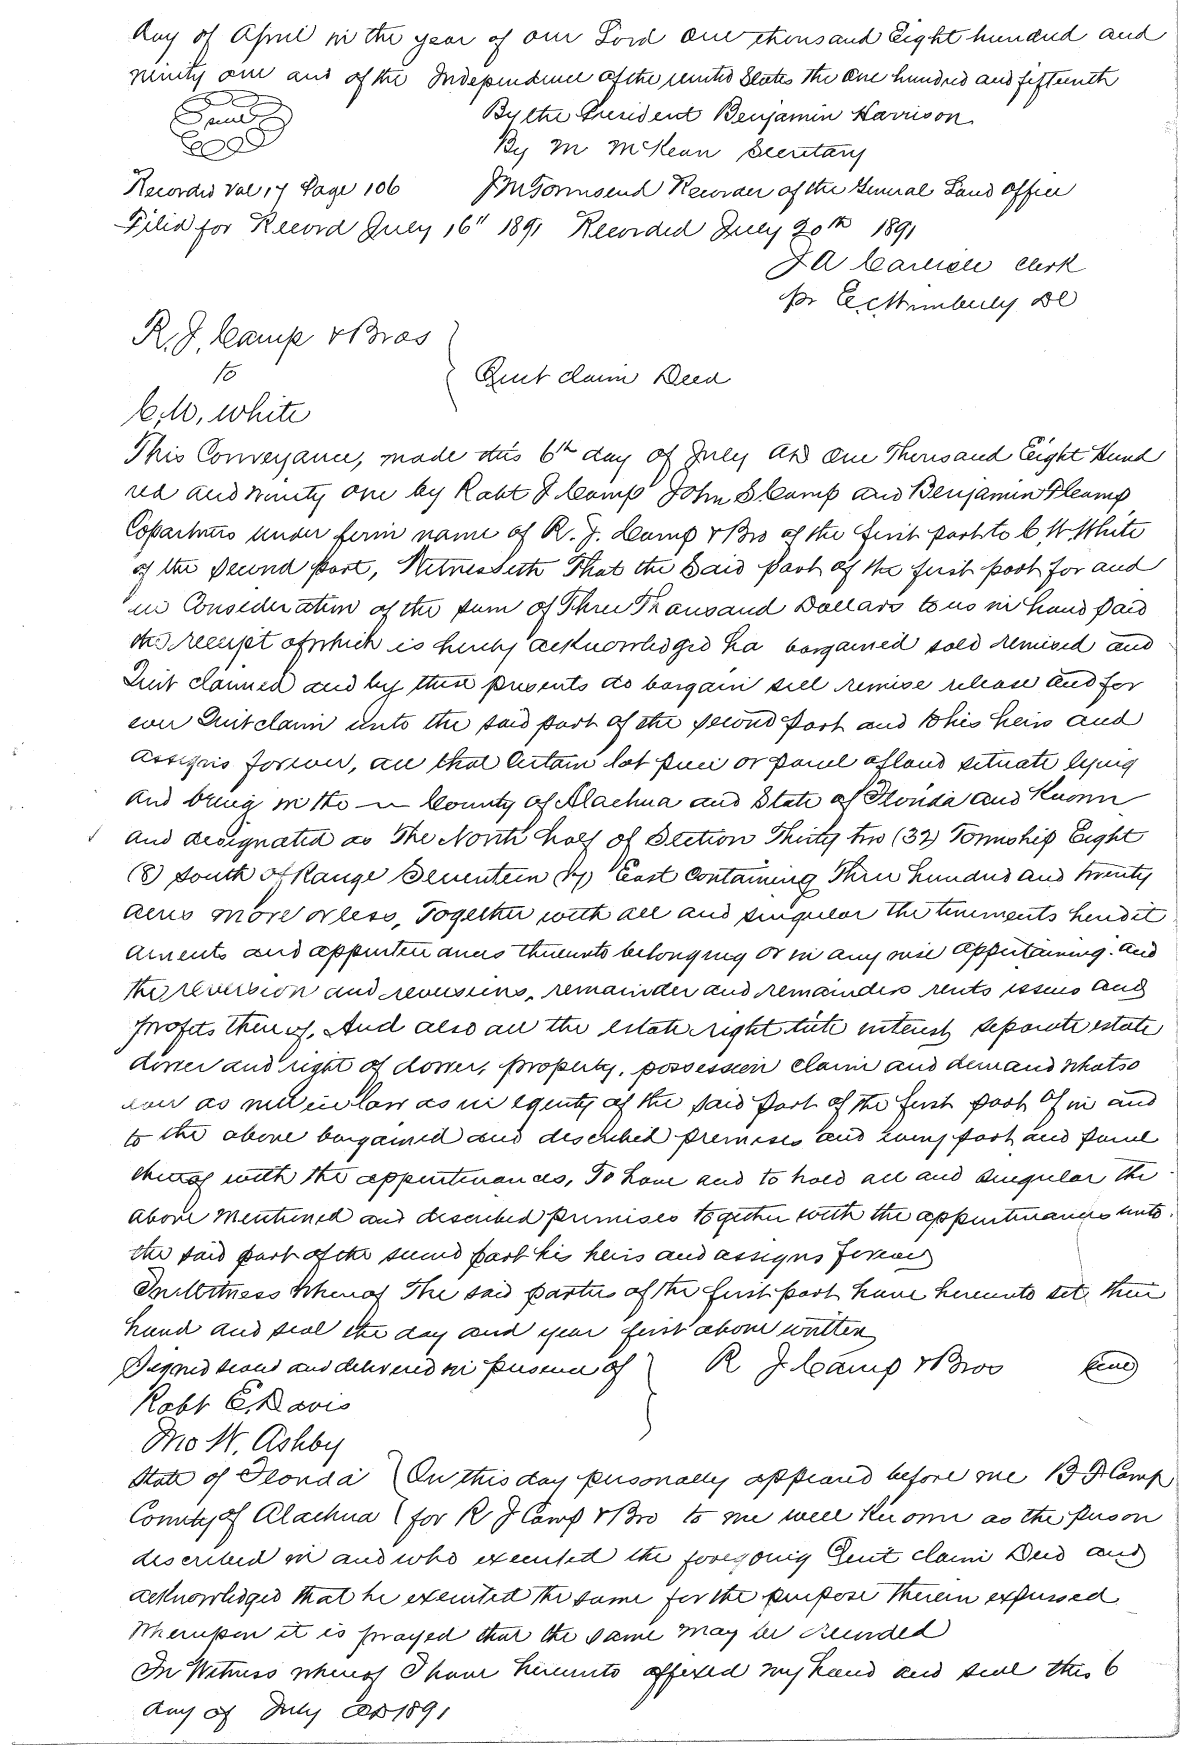 day of April in the year of our Lord One thousand Eight hundred and
ninity one and of the Independence of the united States the One hundred and fifteenth
By the President Benjamin Harrison
Seal
By M McKean Secretary
Recorded Vol 17 Page 106 J M Townsend Recorder of the General Land Office
Filed for Record July 16th 1891 Recorded July 20th 1891
J A Carlisle Clerk
pr E.C. Wimberly DC
R. J. Camp & Bros
to
Quit claim Deed
C. W. White
This Conveyance, made this 6th day of July AD One Thousand Eight Hund
red and ninity one by Robt J Camp John S Camp and Benjamin F Camp
Copartners under firm name of R. J. Camp & Bro of the first part to C W. White
of the second part, Witnesseth That the Said part of the first part for and
in Consideration of the sum of Three Thousand Dollars to us in hand paid
the receipt of which is hereby acknowledged ha bargained sold remised and
Quit claimed and by these presents do bargain sell remise release and for
ever Quit claim unto the said part of the second part and to his heirs and
assigns forever, all that Certain lot piece or parcel of land situate lying
and being in the County of Alachua and State of Florida and Known
and designated as The North half of Section Thirty two (32) Township Eight
(8) South of Range Seventeen (17) East Containing Three hundred and twenty
acres more or less, Together with all and singular the tenements heredit
aments and appurtenances thereunto belonging or in any wise appertaining. and
the reversion and reversions, remainder and remainders rents issues and
profits thereof, And also all the estate right title interest, separate estate
dower and right of dower, property, possession claim and demand whatso
ever as well in law as in equity of the said part of the first part Of in and
to the above bargained and described premises and every part and parcel
thereof with the appurtenances, To have and to hold all and singular the
above mentioned and described premises together with the appurtenances unto
the said part of the second part his heirs and assigns forever
In Witness Whereof The said parties of the first part have hereunto set their
hand and seal the day and year first above written
Signed sealed and delivered in presence of R J Camp & Bros seal
Robt E. Davis
Jno W. Ashby
State of Florida On this day personally appeared before me B F Camp
County of Alachua for R J Camp & Bro to me well Known as the person
described in and who executed the foregoing Quit claim Deed and
acknowledged that he executed the same for the purpose therein expressed
Whereupon it is prayed that the same may be recorded
In Witness whereof I have hereunto affixed my hand and seal this 6
day of July AD 1891